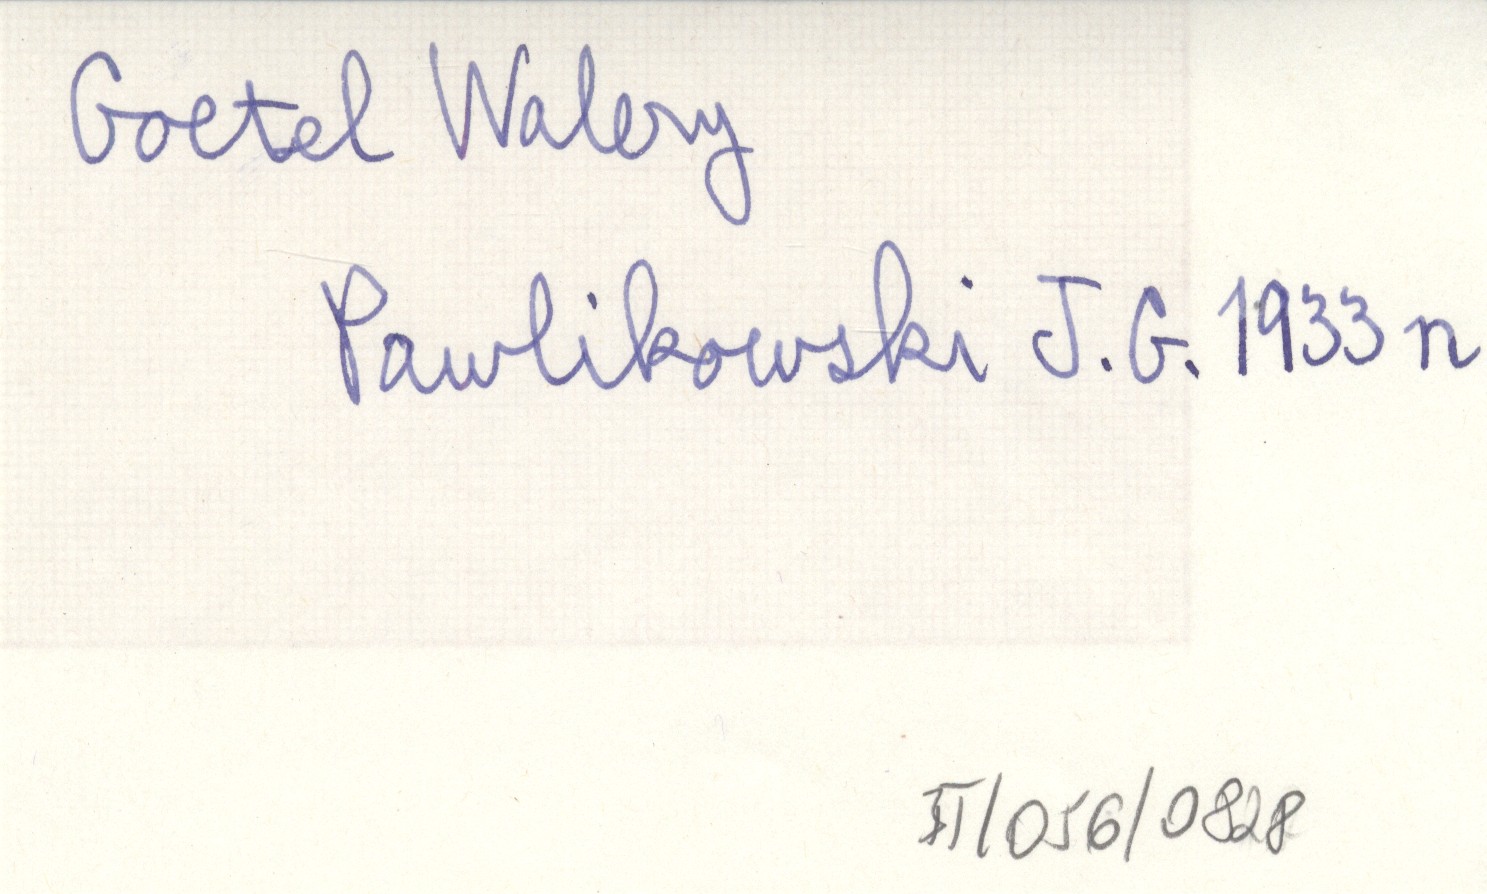 Goetel Walery
Pawlikowski J. G. 1933 n
II/056/0828